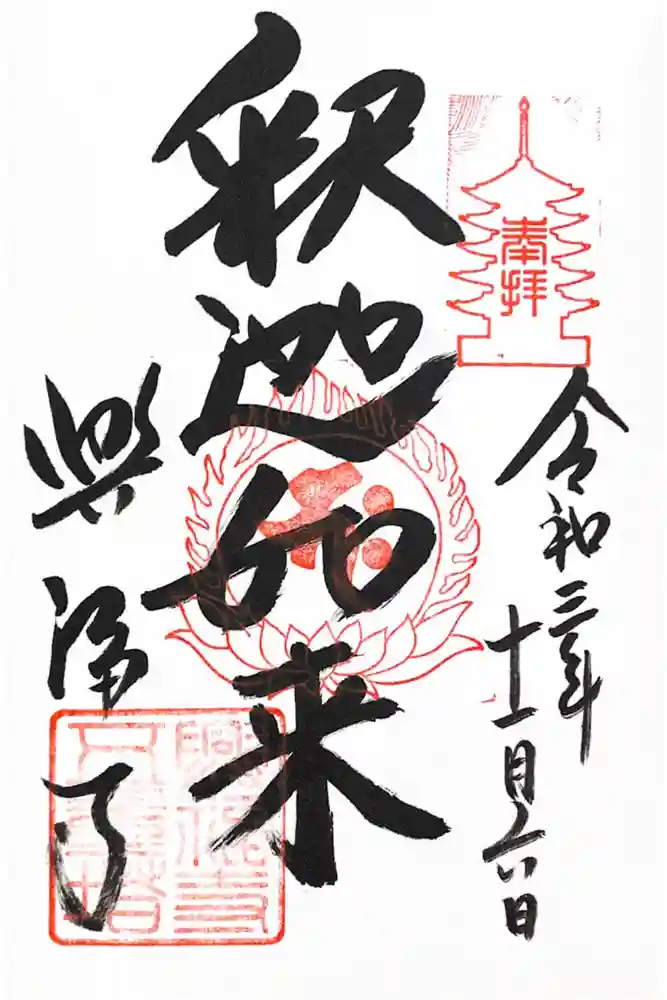 奉拝
令和三年
十一月六日
釈迦如来
興 寺